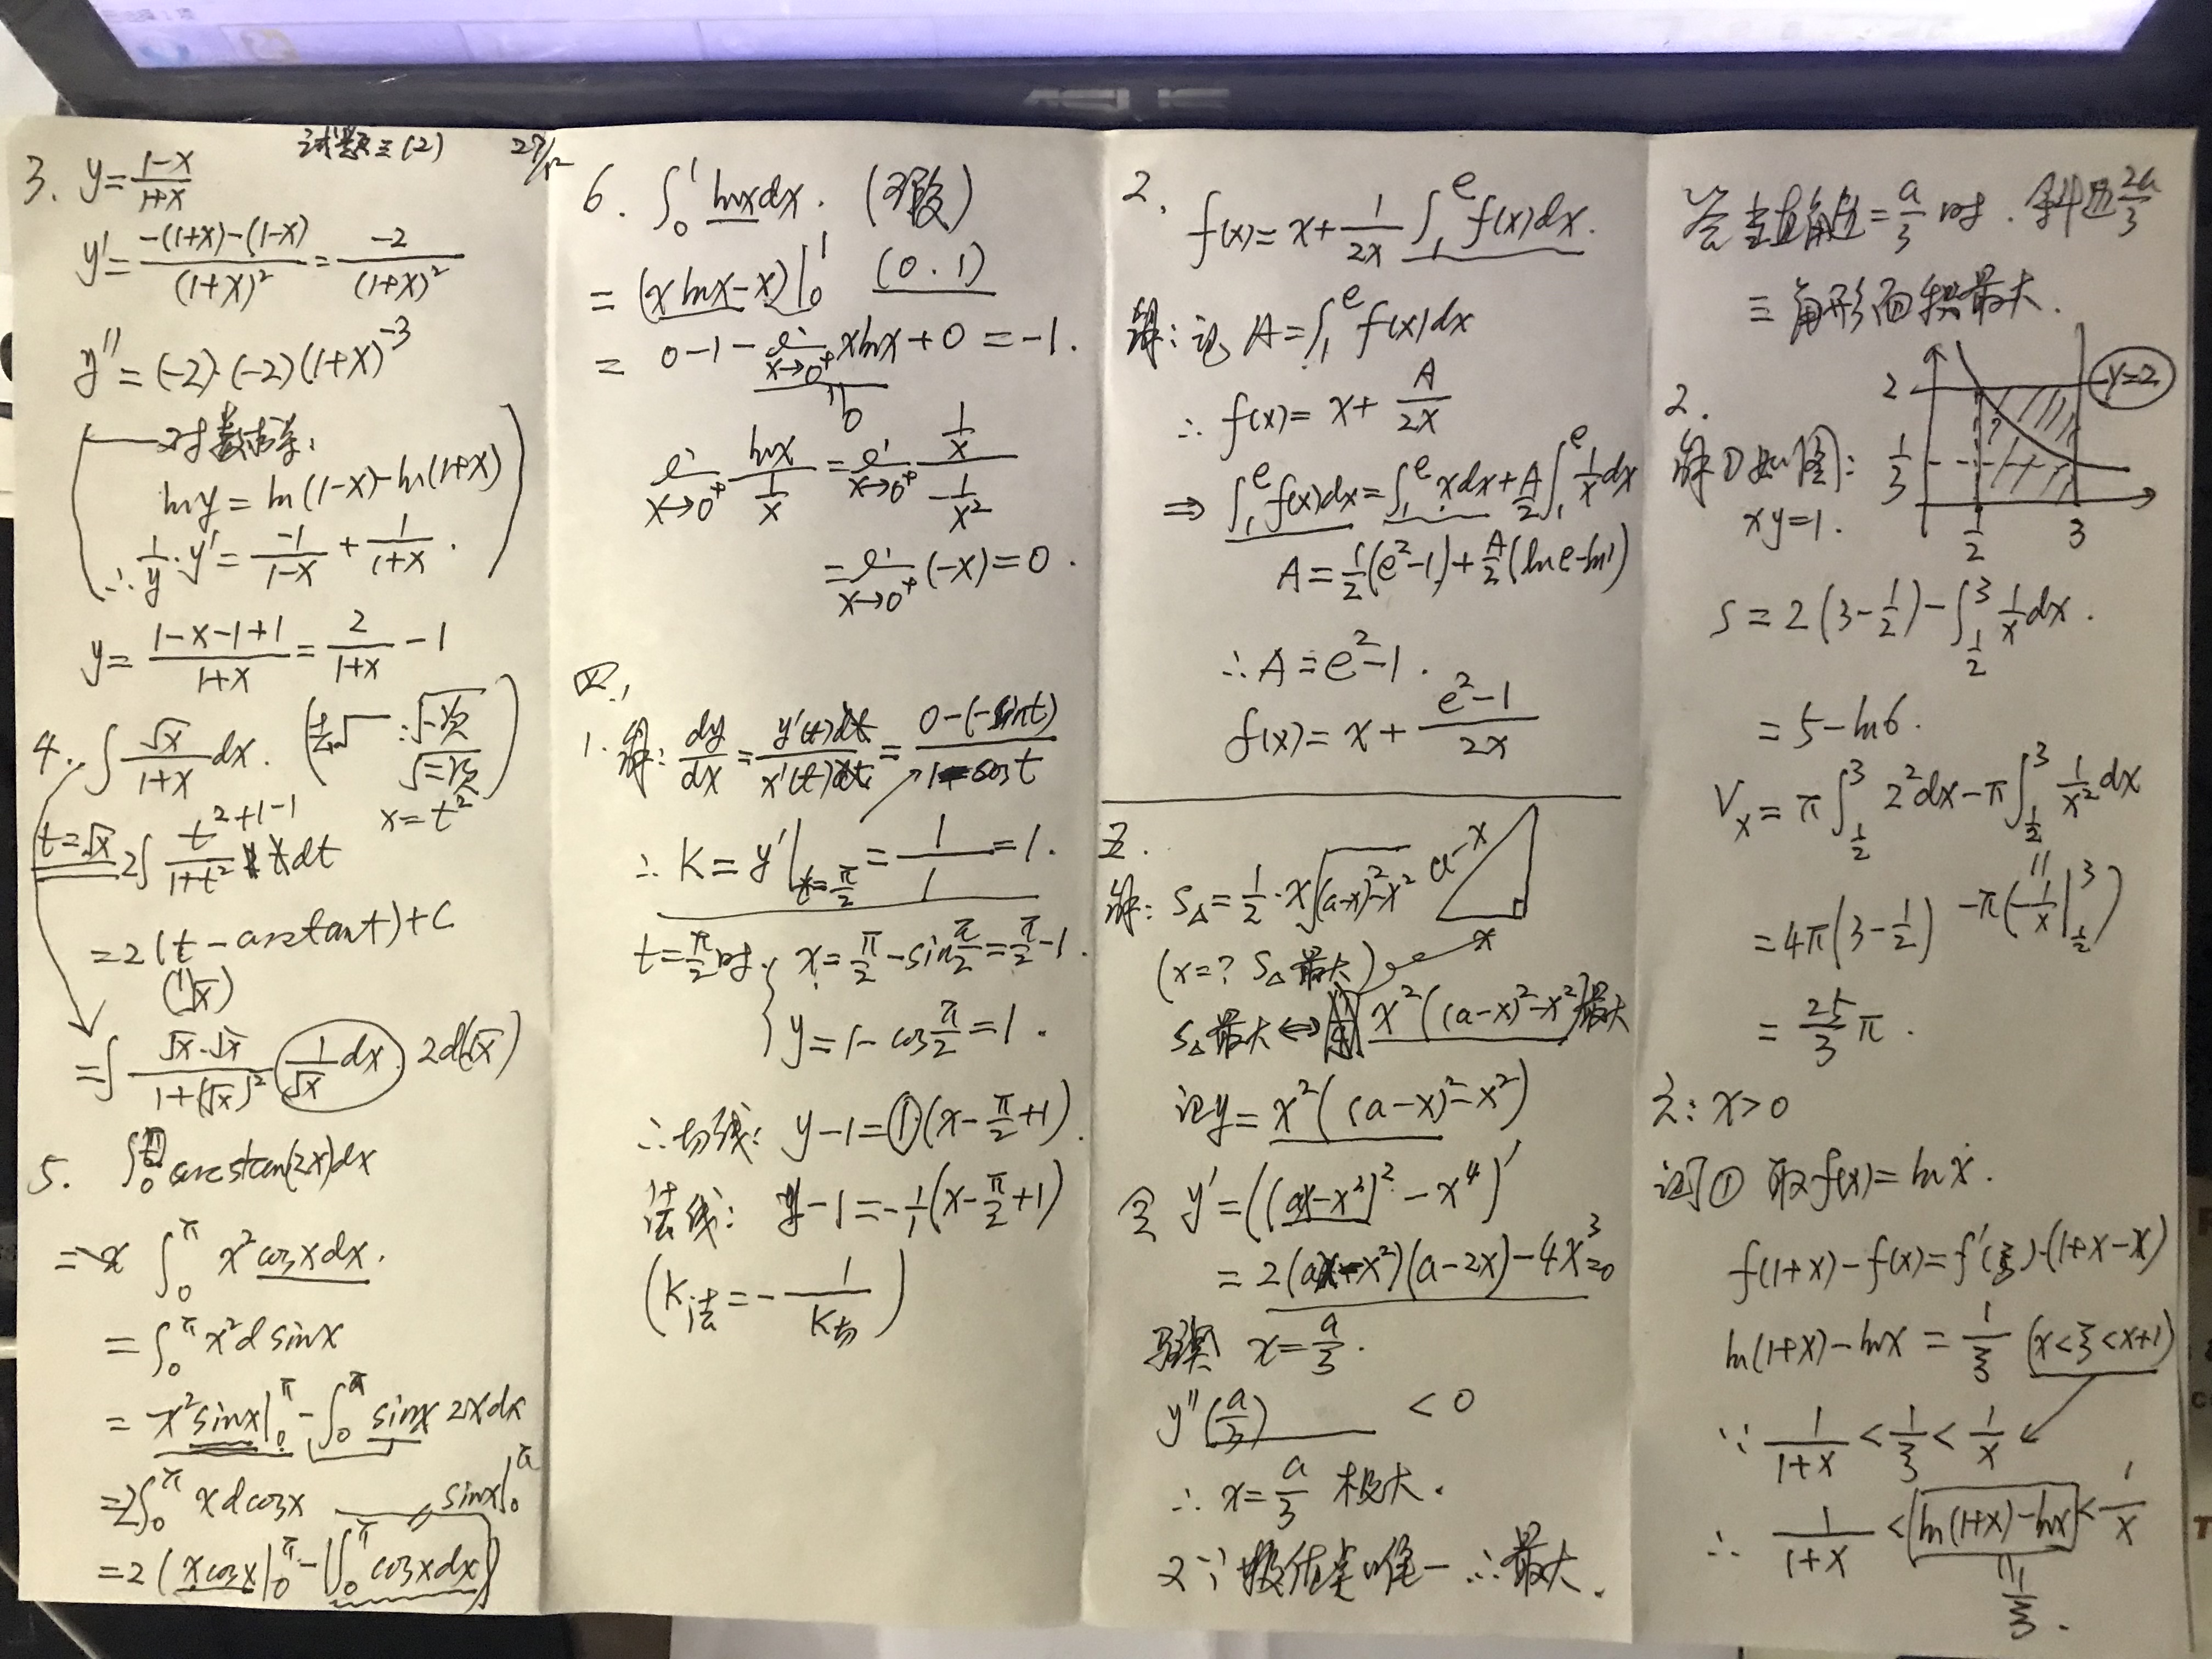 试题三(2) 27/12
3. y=\frac{1-x}{1+x}
y'=\frac{-(1+x)-(1-x)}{(1+x)^2}=\frac{-2}{(1+x)^2}
y''=(-2)·(-2)(1+x)^{-3}
对数求导:
lny=ln(1-x)-ln(1+x)
∴\frac{1}{y}·y'=\frac{-1}{1-x}+\frac{1}{1+x}.
y=\frac{1-x-1+1}{1+x}=\frac{2}{1+x}-1
4. ∫\frac{√x}{1+x}dx. (去√ : √一次
√二次)
x=t^2
t=√x 2∫\frac{t^2+1-1}{1+t^2}dt
=2(t-arctant)+C
(√x)
=∫\frac{√x·√x}{1+(√x)^2} \frac{1}{√x}dx. 2d(√x)
5. ∫_0 arctan(2x)dx
= ∫_0^π x^2cosxdx.
=∫_0^π x^2dsinx
=x^2sinx|_0^π-∫_0^π sinx 2xdx
=2∫_0^π xdcosx sinx|_0^π
=2(xcosx|_0^π-∫_0^π cosxdx)
6. ∫_0^1 lnxdx. (瑕)
=(xlnx-x)|_0^1 (0.1)
=0-1-\lim_{x→0^+}xlnx+0=-1.
0
\lim_{x→0^+}\frac{lnx}{\frac{1}{x}}=\lim_{x→0^+}\frac{\frac{1}{x}}{-\frac{1}{x^2}}
=\lim_{x→0^+}(-x)=0.
四、
1.解:\frac{dy}{dx}=\frac{y'(t)dt}{x'(t)dt}=\frac{0-(-sint)}{1-cost}
∴K=y'|_{t=\frac{π}{2}}=\frac{1}{1}=1.
t=\frac{π}{2}时, x=\frac{π}{2}-sin\frac{π}{2}=\frac{π}{2}-1.
y=1-cos\frac{π}{2}=1.
∴切线: y-1=①(x-\frac{π}{2}+1).
法线: y-1=-\frac{1}{1}(x-\frac{π}{2}+1)
(K法=-\frac{1}{K切})
2. f(x)=x+\frac{1}{2x}∫_1^e f(x)dx.
解:记A=∫_1^e f(x)dx
∴f(x)=x+\frac{A}{2x}
⇒∫_1^e f(x)dx=∫_1^e xdx+\frac{A}{2}∫_1^e \frac{1}{x}dx
A=\frac{1}{2}(e^2-1)+\frac{A}{2}(lne-ln1)
∴A=e^2-1.
f(x)=x+\frac{e^2-1}{2x}
五.
解: S△=\frac{1}{2}·x\sqrt{(a-x)^2-x^2} a-x
x
(x=? S△最大)
S△最大⇔x^2((a-x)^2-x^2)最大
记y=x^2((a-x)^2-x^2)
令 y'=((ax-x^2)^2-x^4)'
=2(ax-x^2)(a-2x)-4x^3=0
驻点 x=\frac{a}{3}.
y''(\frac{a}{3}) <0
∴x=\frac{a}{3} 极大.
又∵极值点唯一∴最大.
答当直角边=\frac{a}{3}时.斜边\frac{2a}{3}
三角形面积最大.
2.
2 y=2
解①如图: \frac{1}{3}
xy=1. \frac{1}{2} 3
S=2(3-\frac{1}{2})-∫_{\frac{1}{2}}^3 \frac{1}{x}dx.
=5-ln6.
V_x=π∫_{\frac{1}{2}}^3 2^2dx-π∫_{\frac{1}{2}}^3 \frac{1}{x^2}dx
=4π(3-\frac{1}{2}) -π(-\frac{1}{x}|_{\frac{1}{2}}^3)
=\frac{25}{3}π.
六: x>0
证① 取f(x)=lnx.
f(1+x)-f(x)=f'(ξ)·(1+x-x)
ln(1+x)-lnx=\frac{1}{ξ} (x<ξ<x+1)
∵\frac{1}{1+x}<\frac{1}{ξ}<\frac{1}{x}
∴\frac{1}{1+x}<ln(1+x)-lnx<\frac{1}{x}
\frac{1}{ξ}.